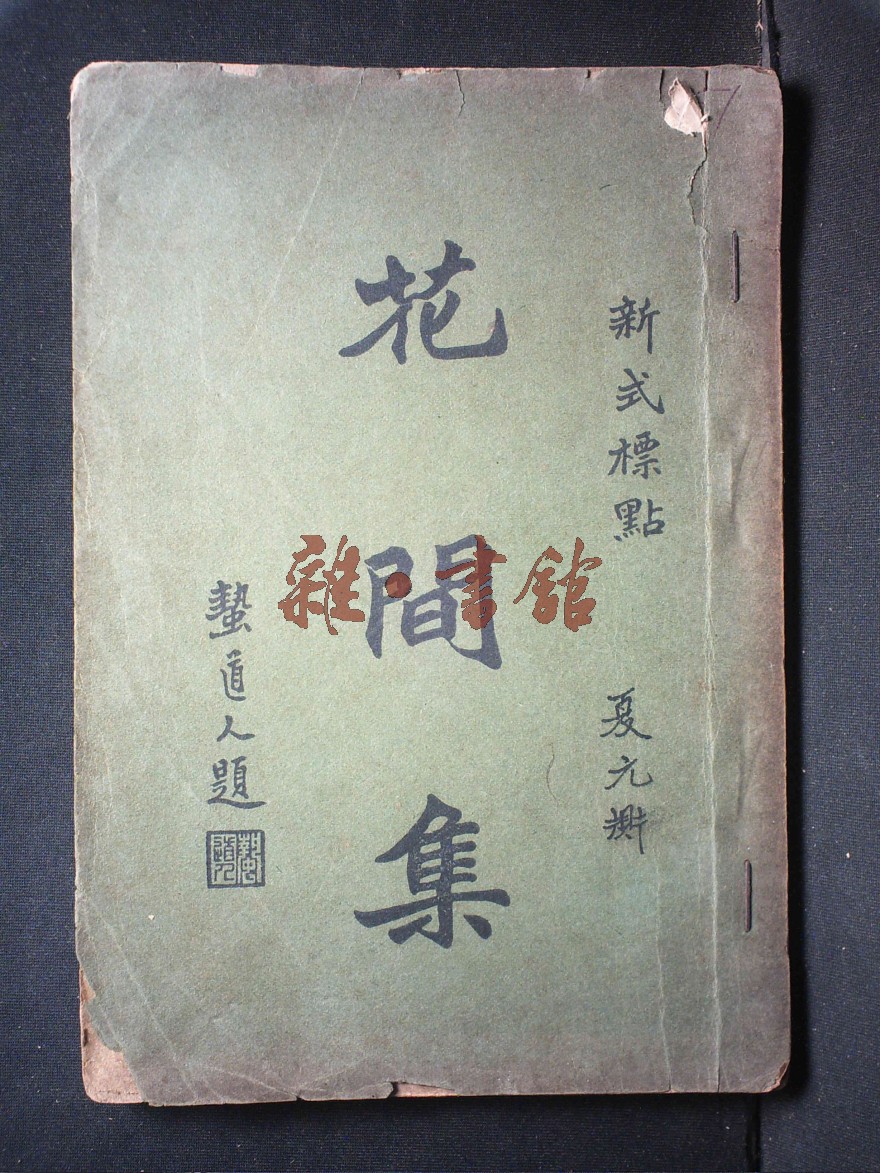 新式標點
夏元
花間集
蟄道人題
雜·書館